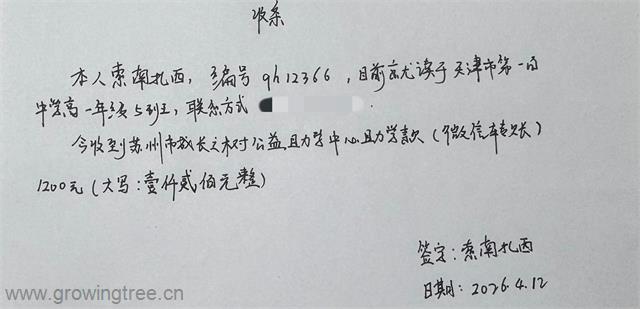 收条
本人索南扎西，编号qh12366，目前就读于天津市第一百
中学高一年级5班，联系方式
今收到苏州市成长之树公益助学中心助学款（微信转账）
1200元（大写：壹仟贰佰元整）
签字：索南扎西
日期：2026.4.12
www.growingtree.cn